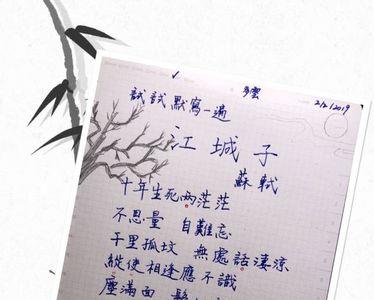 多雲
2/2/2019
試試默寫一遍
江城子
蘇軾
十年生死兩茫茫
不思量 自難忘
千里孤坟 無處話淒涼
縱使相逢應不識
塵滿面